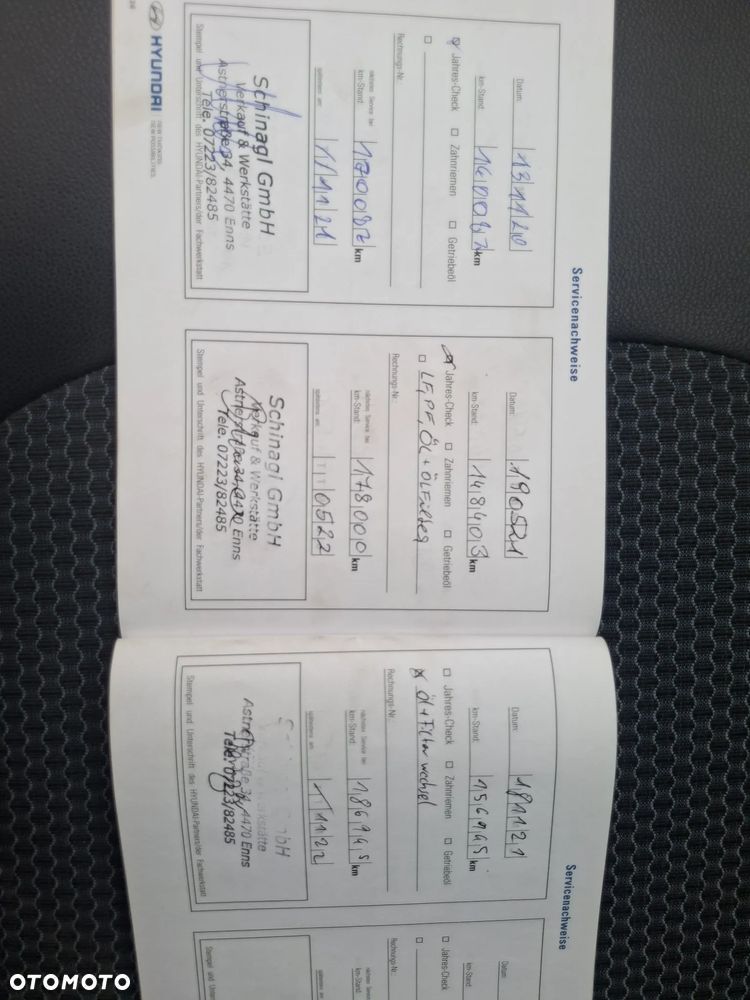 Servicenachweise
Datum: 131120
km-Stand: 140087 km
Jahres-Check Zahnriemen Getriebeöl
Rechnungs-Nr.:
nächster Service bei
km-Stand: 170087 km
spätestens am: 1/1121
Schinagl GmbH
Verkauf & Werkstätte
Astnerstraße 34, 4470 Enns
Tele. 07223/82485
Stempel und Unterschrift des HYUNDAI-Partners/der Fachwerkstatt
HYUNDAI
NEW THINKING.
NEW POSSIBILITIES.
Datum: 190521
km-Stand: 148403 km
Jahres-Check Zahnriemen Getriebeöl
LF, PF, ÖL + ÖLFilter
Rechnungs-Nr.:
nächster Service bei
km-Stand: 178000 km
spätestens am: 0522
Schinagl GmbH
Verkauf & Werkstätte
Astnerstraße 34, 4470 Enns
Tele. 07223/82485
Stempel und Unterschrift des HYUNDAI-Partners/der Fachwerkstatt
Servicenachweise
Datum: 181121
km-Stand: 156945 km
Jahres-Check Zahnriemen Getriebeöl
Öl + Filter wechsel
Rechnungs-Nr.:
nächster Service bei
km-Stand: 186945 km
spätestens am: 1122
Astnerstraße 34, 4470 Enns
Tele. 07223/82485
Stempel und Unterschrift des HYUNDAI-Partners/der Fachwerkstatt
Datum:
km-Stand:
Jahres-Check
Rechnungs-Nr.:
nächster Service bei
km-Stand:
spätestens am:
Stempel und Unterschrift
OTOMOTO